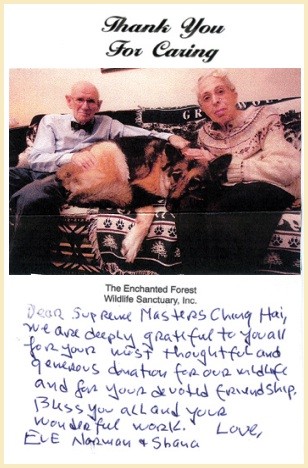 Thank You
For Caring
The Enchanted Forest
Wildlife Sanctuary, Inc.
Dear Supreme Masters Ching Hai,
we are deeply grateful to you all
for your most thoughtful and
generous donation for our wildlife
and for your devoted friendship.
Bless you all and your
wonderful work. Love,
Eve Norman & Shana